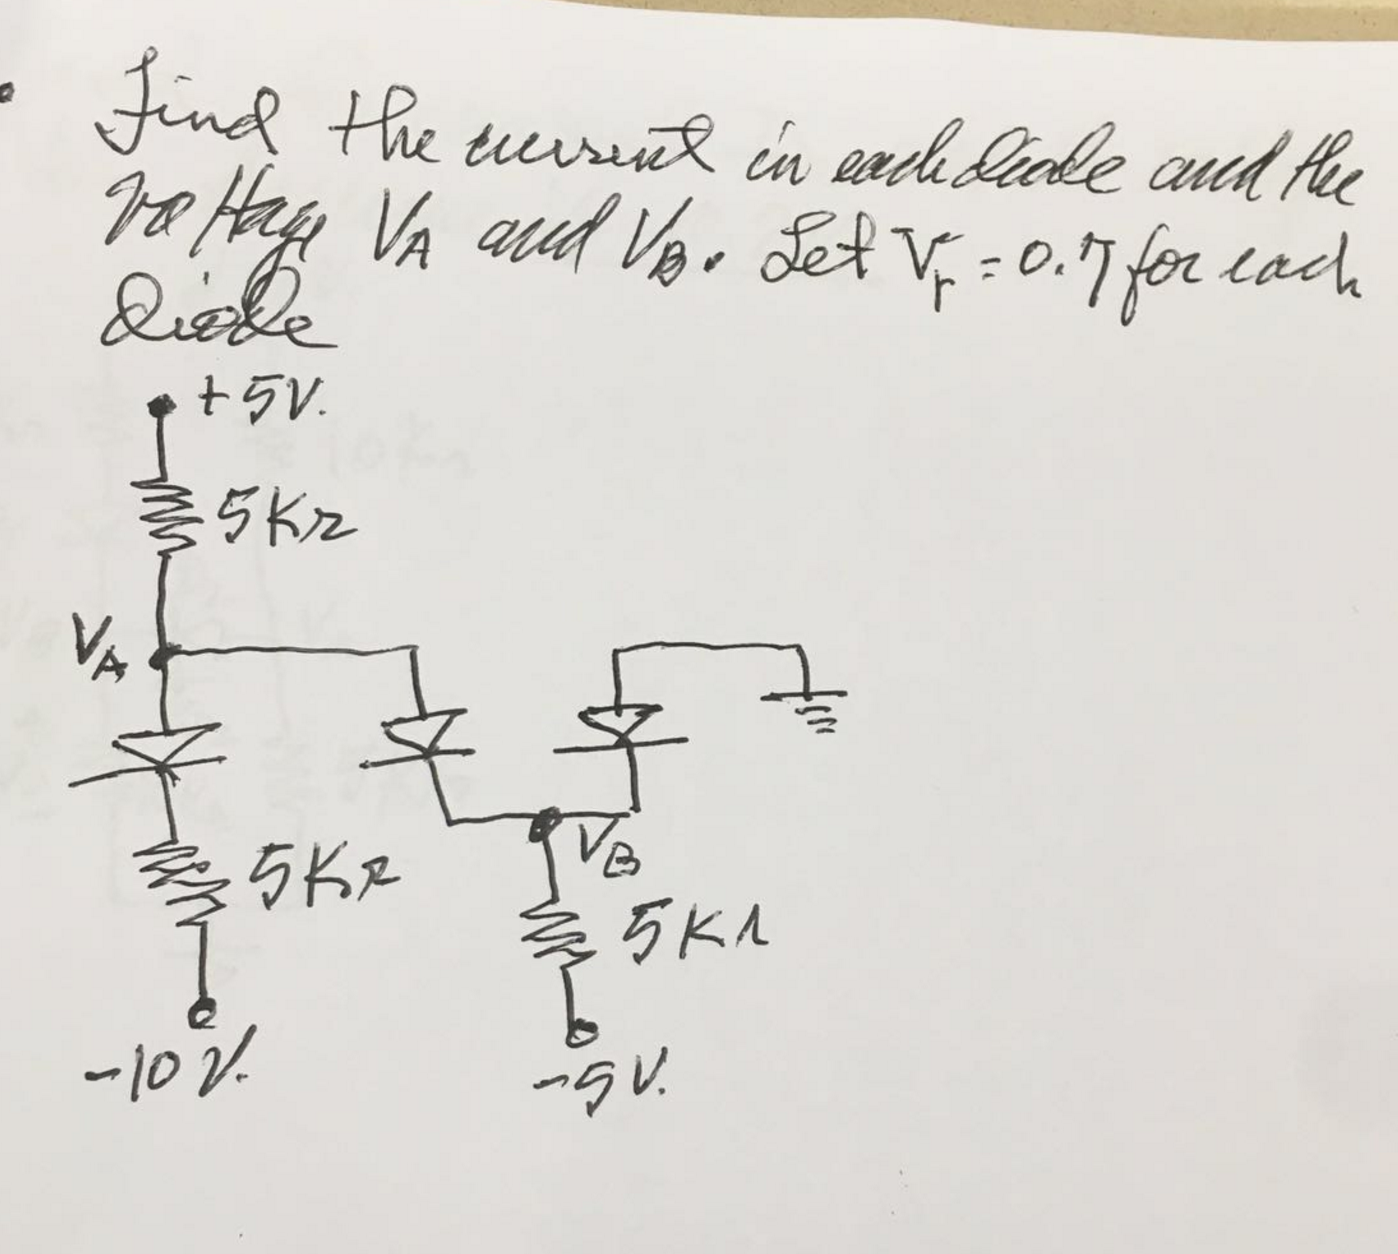 Find the current in each diode and the
voltage VA and VB. Let Vr = 0.7 for each
diode
+5V.
5KΩ
VA
VB
5KΩ
5KΩ
-10V.
-5V.